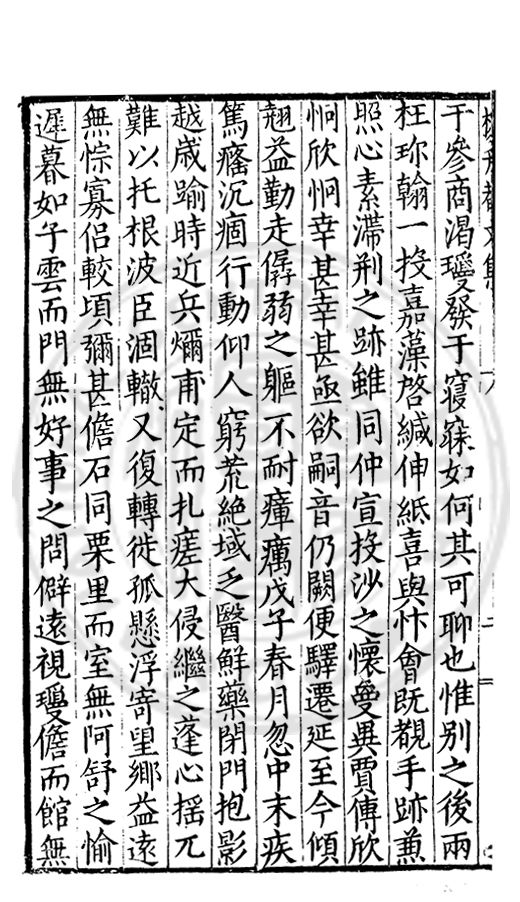 于參商渴㻛發于寤寐如何其可聊也惟別之後兩
枉珎翰一投嘉藻啓緘伸紙喜與忭會既覩手跡兼
照心素滯荆之跡雖同仲宣投沙之懷㚅異賈傅欣
恫欣恫幸甚幸甚亟欲嗣音仍闕便驛遷延至今傾
翹益勤走孱弱之軀不耐瘴癘戊子春月忽中末疾
篤癃沉痼行動仰人窮荒絶域乏醫鮮藥閉門抱影
越歲踰時近兵燹甫定而扎瘥大侵繼之蓬心揺兀
難以托根波臣涸轍又復轉徙孤懸浮寄望鄉益遠
無悰寡侣較頃彌甚儋石同栗里而室無阿舒之愉
遲暮如子雲而門無好事之問僻遠視瓊儋而館無